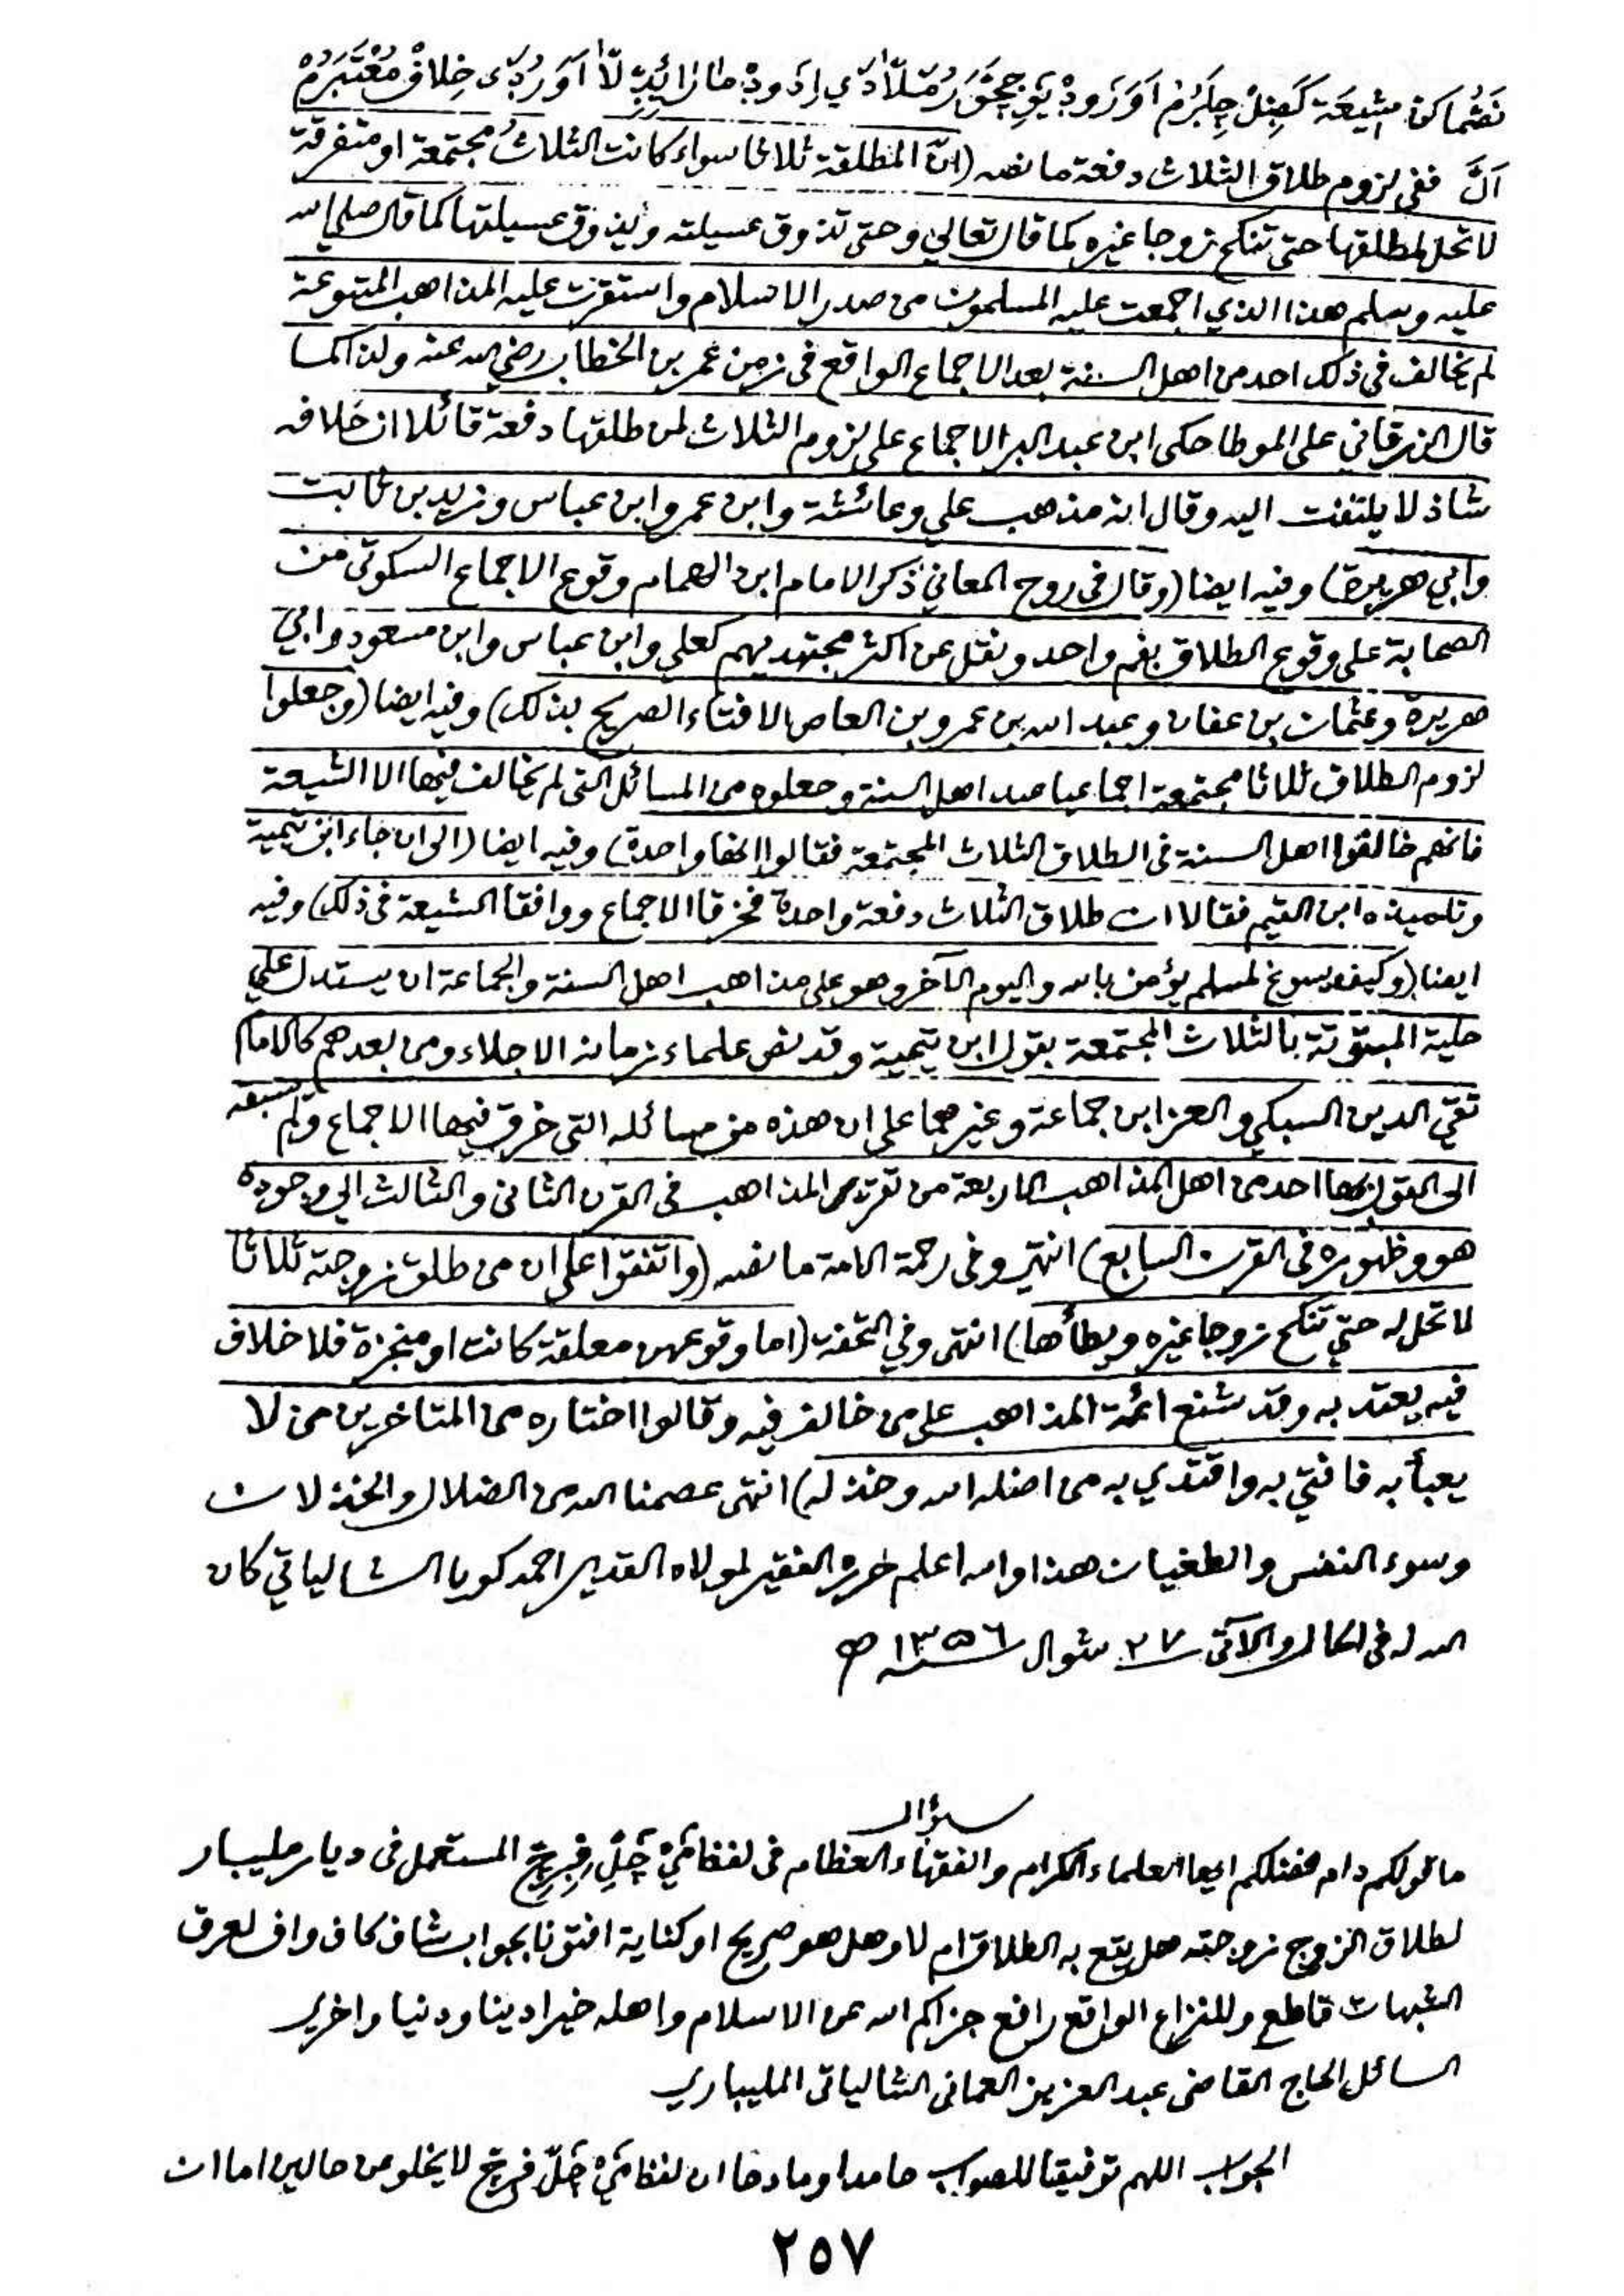 انَّ ففى لزوم طلاق الثلاث دفعة ما نصه (انّ المطلقة ثلاثا سواء كانت الثلاثُ مجتمعة او متفرقة
لا تحل لمطلقها حتى تنكح زوجا غيره كما قال تعالى وحتى تذوق عسيلته ويذوق عسيلتها كما قال صلى الله
عليه وسلم هذا الذي اجمعت عليه المسلمون من صدر الاسلام واستقرت عليه المذاهب المتبوعة
لم يخالف فى ذلك احد من اهل السنة بعد الاجماع الواقع فى زمن عمر بن الخطاب رضي الله عنه ولذا كما
قال الزرقاني على الموطا حكى ابن عبد البر الاجماع على لزوم الثلاث لمن طلقها دفعة قائلا ان خلافه
شاذ لا يلتفت اليه وقال انه مذهب علي وعائشة وابن عمر وابن عباس وزيد بن ثابت
وابي هريرة) وفيه ايضا (وقال فى روح المعاني ذكر الامام ابن الهمام وقوع الاجماع السكوتى من
الصحابة على وقوع الطلاق بفم واحد ونقل عن اكثر مجتهديهم كعلي وابن عباس وابن مسعود وابي
هريرة وعثمان بن عفان وعبد الله بن عمرو بن العاص الافتاء الصريح بذلك) وفيه ايضا (وجعلوا
لزوم الطلاق ثلاثا مجتمعة اجماعيا عند اهل السنة وجعلوه من المسائل التى لم يخالف فيها الا الشيعة
فانهم خالفوا اهل السنة فى الطلاق الثلاث المجتمعة فقالوا انها واحدة) وفيه ايضا (الى ان جاء ابن تيمية
وتلميذه ابن القيم فقالا ان طلاق الثلاث دفعة واحدة فخرقا الاجماع ووافقا الشيعة فى ذلك) وفيه
ايضا (وكيف يسوغ لمسلم يؤمن بالله واليوم الآخر وهو على مذاهب اهل السنة والجماعة ان يستدل على
حلية المبتوتة بالثلاث المجتمعة بقول ابن تيمية وقد نص علماء زمانه الاجلاء ومن بعدهم كالامام
تقي الدين السبكي والعز ابن جماعة وغيرهما على ان هذه من مسائله التى خرق فيها الاجماع ولم يسبقه
الى القول بها احد من اهل المذاهب الاربعة من تقرير المذاهب فى القرن الثانى والثالث الى وجوده
هو وظهوره فى القرن السابع) انتهى وفى رحمة الامة ما نصه (واتفقوا على ان من طلق زوجته ثلاثا
لا تحل له حتى تنكح زوجا غيره ويطأها) انتهى وفي التحفة (اما وقوعهن معلقة كانت او منجزة فلا خلاف
فيه يعتد به وقد شنع ائمة المذاهب على من خالف فيه وقالوا اختاره من المتاخرين من لا
يعبأ به فافتى به واقتدي به من اضله الله وخذله) انتهى عصمنا الله من الضلال والخذلان
وسوء النفس والطغيان هذا والله اعلم حرره الفقير لمولاه القدير احمد كويا الشالياتي كان
الله له فى الحال والآتى ٢٧ شوال سنة ١٣٥٦ ه
سؤال
ما قولكم دام فضلكم ايها العلماء الكرام والفقهاء العظام فى لفظ المستعمل فى ديار مليبار
لطلاق الزوج زوجته هل يقع به الطلاق ام لا وهل هو صريح او كناية افتونا بجواب شاف كاف واف لعرق
الشبهات قاطع وللنزاع الواقع رافع جزاكم الله عن الاسلام واهله خيرا دينا ودنيا واخرى
السائل الحاج القاضى عبد العزيز العمانى الشالياتى المليباري
الجواب اللهم توفيقا للصواب حامدا ومادحا ان لفظ لا يخلو من حالين اما ان
٢٥٧